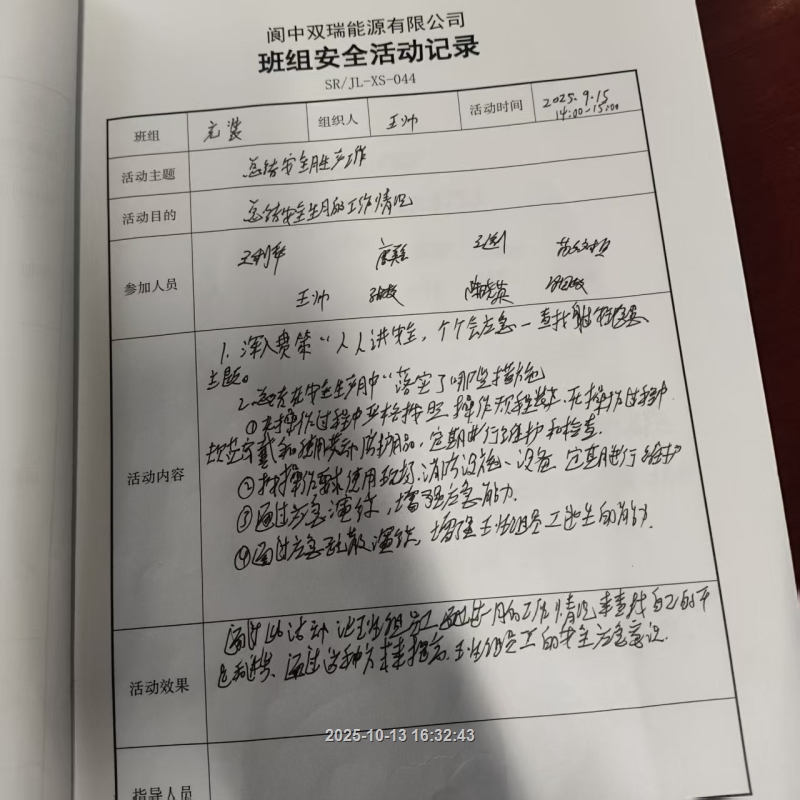 阆中双瑞能源有限公司
班组安全活动记录
SR/JL-XS-044
班组 充装 组织人 王帅 活动时间 2025.9.15 14:00-15:00
活动主题 总结安全月生产工作
活动目的 总结安全生月的工作情况
参加人员
王帅
活动内容
1. 深入贯策“人人讲安全，个个会应急—查找身边
主题。
2. 总结在安全生产月中“落实了哪些措施
①在操作过程中严格按照操作规程 在操作过程中
规范穿戴和使用劳动防护用品，定期进行维护和检查.
②按操作要求使用现场消防设施、设备 定期进行维护
③通过应急演练，增强应急能力.
④通过应急疏散演练，增强王班组员工逃生的能力.
活动效果
通过此活动 让王班组员工 通过 月的工作情况来查找自己的不
足和进步. 通过这种方来来提高.王班组员工的安全应急意识.
指导人员
2025-10-13 16:32:43